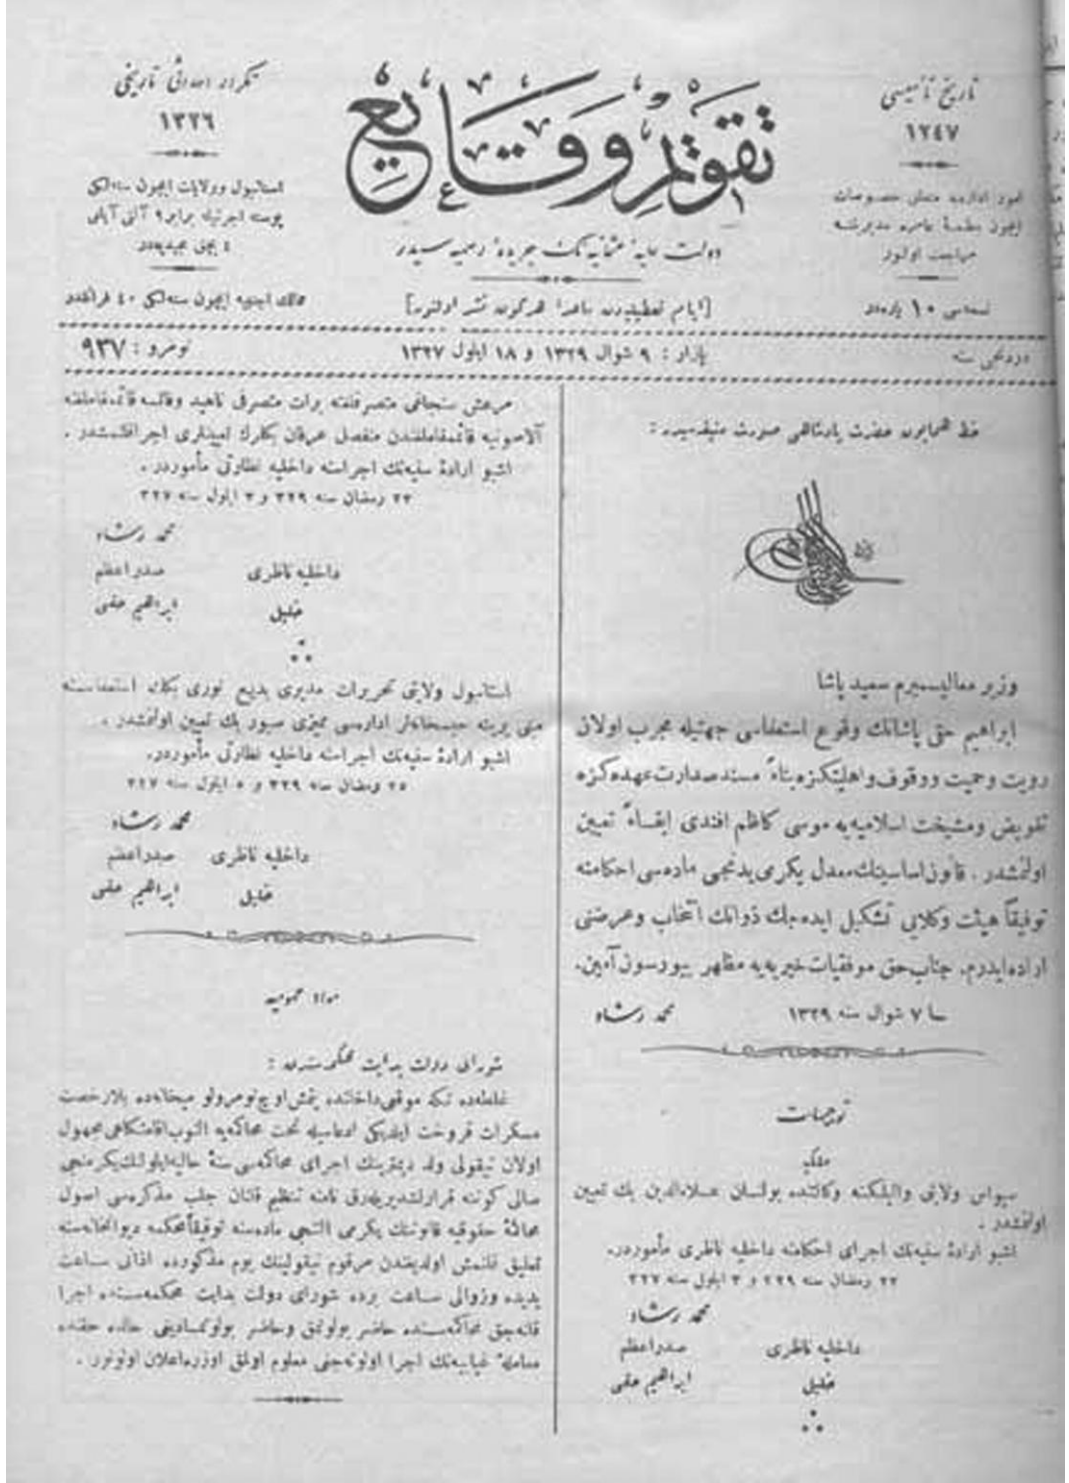 تاریخ تأسیسی
١٢٤٧
امور اداره‌یه متعلق خصوصات
ایچون مطبعۀ عامره مدیریتنه
مراجعت اولنور
نسخه‌سی ١٠ پاره‌در
تقویم وقایع
دولت علیۀ عثمانیه‌نك جریدۀ رسمیه سیدر
[ایام تعطیلیه‌دن ماعدا هر كون نشر اولنور]
تكرار احداثی تاریخی
١٣٢٦
استانبول و ولایات ایچون سنه‌لكی
پوسته اجرتیله برابر ٩ آلتی آیلغی
٥ بچق مجیدیه‌در
ممالك اجنبیه ایچون سنه‌لكی ٤٠ فرانقدر
دردنجی سنه
پازار : ٩ شوال ١٣٢٩ و ١٨ ایلول ١٣٢٧
نومرو : ٩٣٧
خط همایون حضرت پادشاهی صورت منیفه‌سیدر :
وزیر معالیسمیرم سعید پاشا
ابراهیم حقی پاشانك وقوع استعفاسی جهتیله مجرب اولان
رویت وحمیت ووقوف واهلیتكزه بناءً مسند صدارت عهده‌كزه
تفویض ومشیخت اسلامیه‌یه موسی كاظم افندی ابقاءً تعیین
اولنمشدر . قانون اساسینك معدل یكرمی یدنجی ماده‌سی احكامنه
توفیقاً هیئت وكلایی تشكیل ایده‌جك ذواتك انتخاب وعرضنی
اراده ایدرم. جناب حق موفقیات خیریه‌یه مظهر بیورسون آمین.
٧ شوال سنه ١٣٢٩
محمد رشاد
توجیهات
ملكیه
سیواس ولایتی والیلكنه وكالتده بولنان علاءالدین بك تعیین
اولنمشدر .
اشبو ارادۀ سنیه‌نك اجرای احكامنه داخلیه ناظری مأموردر.
٢٣ رمضان سنه ٣٢٩ و ٣ ایلول سنه ٣٢٧
محمد رشاد
داخلیه ناظری صدراعظم
خلیل ابراهیم حقی
مرعش سنجاغی متصرفلغنه برات متصرفی ناهید و قائمقاملغنه
آلاصونیه قائمقاملغندن منفصل عرفان بكلرك تعیینلری اجرا قلنمشدر .
اشبو ارادۀ سنیه‌نك اجراسنه داخلیه نظارتی مأموردر.
٢٣ رمضان سنه ٣٢٩ و ٣ ایلول سنه ٣٢٧
محمد رشاد
داخلیه ناظری صدراعظم
خلیل ابراهیم حقی
استانبول ولایتی تحریرات مدیری بدیع نوری بكك استعفاسنه
مبنی یرینه حبسخانه‌لر اداره‌سی ممیزی صبور بك تعیین اولنمشدر .
اشبو ارادۀ سنیه‌نك اجراسنه داخلیه نظارتی مأموردر.
٢٥ رمضان سنه ٣٢٩ و ٥ ایلول سنه ٣٢٧
محمد رشاد
داخلیه ناظری صدراعظم
خلیل ابراهیم حقی
مواد عمومیه
شورای دولت بدایت محكمه‌سندن :
غلطه‌ده تكه موقعی داخلنده یتمش اوچ نومرولو میخانه‌ده بلارخصت
مسكرات فروخت ایلدیكی ادعاسیله تحت محاكمه‌یه آلنوب اقامتكاهی مجهول
اولان نیقولی ولد دیمترینك اجرای محاكمه‌سی سنۀ حالیه ایلولنك یكرمنجی
صالی كوننه قرارلشدیریله‌رق نامنه تنظیم قلنان جلب مذكره‌سی اصول
محاكمۀ حقوقیه قانوننك یكرمی آلتنجی ماده‌سنه توفیقاً محكمه دیوانخانه‌سنه
تعلیق قلنمش اولدیغندن مرقوم نیقولینك یوم مذكورده اذانی ساعت
یدیده وزوالی ساعت برده شورای دولت بدایت محكمه‌سنده اجرا
قلنه‌جق محاكمه‌سنده حاضر بولونمق وحاضر بولونمادیغی حالده حقنده
معاملۀ غیابیه‌نك اجرا اولنه‌جغی معلوم اولمق اوزره اعلان اولونور .